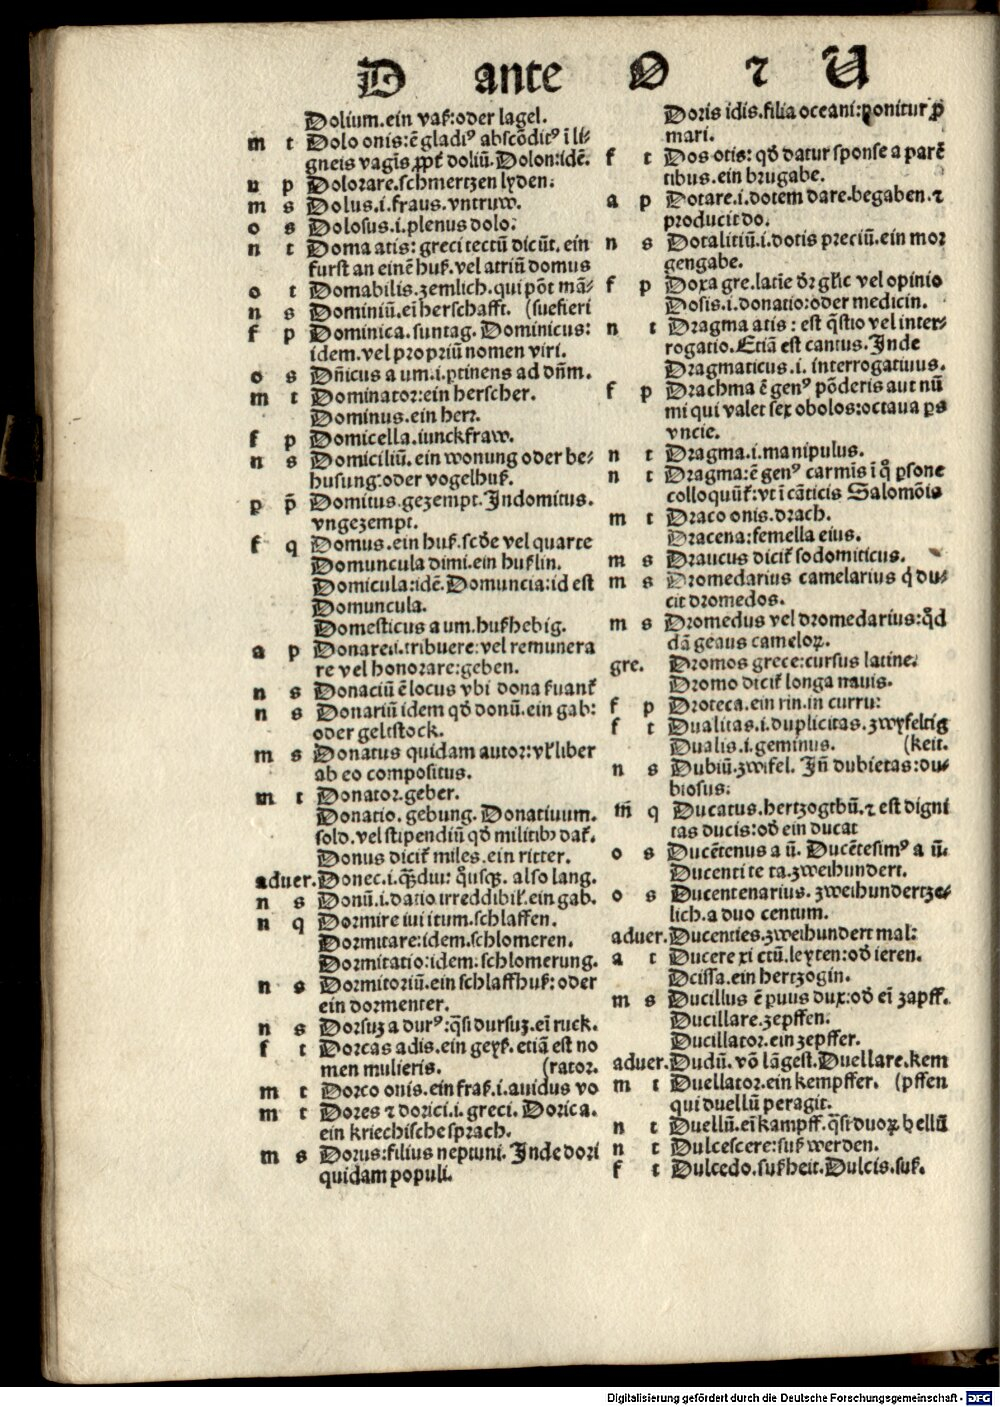 D ante O ⁊ U
Dolium.ein vaß:oder lagel.
m t Dolo onis:ē gladiꝰ abscōditꝰ ī li⸗
gneis vagīs ꝓpt̄ doliū.Dolon:idē.
n p Dolorare.schmertzen lyden:
m s Dolus.i.fraus.vntruw.
o s Dolosus.i.plenus dolo:
n t Doma atis: greci tectū dicūt. ein
furst an einē huß.vel atriū domus
o t Domabilis.zemlich.qui pōt mā⸗
n s Dominiū.eī herschafft. (suefieri
f p Dominica.suntag. Dominicus:
idem.vel propriū nomen viri.
o s Dn̄icus a um.i.ꝑtinens ad dn̄m.
m t Dominator:ein herscher.
Dominus.ein herr.
f p Domicella.iunckfraw.
n s Domiciliū.ein wonung oder be⸗
husung:oder vogelhuß.
p p̄ Domitus.gezempt.Indomitus.
vngezempt.
f q Domus.ein huß.scd̄e vel quarte
Domuncula dimi.ein hußlin.
Domicula:idē.Domuncia:id est
Domuncula.
Domesticus a um.hußhebig.
a p Donare.i.tribuere:vel remunera
re vel honorare:geben.
n s Donaciū ē locus vbi dona ẜuant̄
n s Donariū idem qd̄ donū.ein gab:
oder geltstock.
m s Donatus quidam autor:vl̄ liber
ab eo compositus.
m t Donator.geber.
Donatio. gebung. Donatiuum.
sold.vel stipendiū qd̄ militibꝫ daꝶ.
Donus diciꝶ miles.ein ritter.
aduer. Donec.i.qȝdiu: qͦusqꝫ. also lang.
n s Donū.i.datio irreddibil̄.ein gab.
n q Dormire iui itum.schlaffen.
Dormitare:idem.schlomeren.
Dormitatio:idem:schlomerung.
n s Dormitoriū.ein schlaffhuß:oder
ein dormenter.
n s Dorsuȝ a durꝰ:q̄si dursuȝ.eī ruck.
f t Dorcas adis.ein geyß.etiā est no
men mulieris. (rator.
m t Dorco onis.ein fraß.i.auidus vo
m t Dores ⁊ dorici.i.greci. Dorica.
ein kriechische sprach.
m s Dorus:filius neptuni. Inde dori
quidam populi.
Doris idis.filia oceani:ponitur ꝓ
mari.
f t Dos otis: qd̄ datur sponse a parē
tibus.ein brugabe.
a p Dotare.i.dotem dare.begaben.⁊
producit do.
n s Dotalitiū.i.dotis preciū.ein mor
gengabe.
f p Doxa gre.latīe dr̄ gl̄ie vel opinio
Dosis.i.donatio:oder medicin.
n t Dragma atis: est q̄stio vel inter⸗
rogatio.Etiā est cantus.Inde
Dragmaticus.i. interrogatiuus.
f p Drachma ē genꝰ pōderis aut nū
mi qui valet sex obolos:octaua ps
vncie.
n t Dragma.i.manipulus.
n t Dragma:ē genꝰ carmīs ī qͦ ꝑsone
colloquūt̄:vt ī cāticis Salomōis
m t Draco onis.drach.
Dracena:femella eius.
m s Draucus diciꝶ sodomiticus.
m s Dromedarius camelarius qͥ du⸗
cit dromedos.
m s Dromedus vel dromedarius:qͦdd
dā genus cameloꝝ.
gre. Dromos grece:cursus latine:
Dromo diciꝶ longa nauis.
f p Droteca.ein rin.in curru:
f t Dualitas.i.duplicitas.zwyfeltig
Dualis.i.geminus. (keit.
n s Dubiū.zwifel. In̄ dubietas:du⸗
biosus:
m̄ q Ducatus.hertzogthū.⁊ est digni
tas ducis:od̄ ein ducat
o s Ducētenus a ū. Ducētesimꝰ a ū.
Ducenti te ta.zweihundert.
o s Ducentenarius. zweihundertze⸗
lich.a duo centum.
aduer. Ducenties.zweihundert mal:
a t Ducere xi ctū.leyten:od̄ ieren.
Dcissa.ein hertzogin.
m s Ducillus ē ꝑuus dux:od̄ eī zapff.
Ducillare.zepffen:
Ducillator.ein zepffer.
aduer. Dudū. vō lāgest.Duellare.kem
m t Duellator.ein kempffer. (pffen
qui duellū peragit.
n t Duellū.eī kampff.q̄si duoꝝ bellū
n t Dulcescere:suß werden.
f t Dulcedo.sußheit.Dulcis.suß.
Digitalisierung gefördert durch die Deutsche Forschungsgemeinschaft - DFG